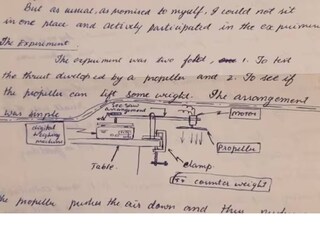 But as usual, as promised to myself, I could not sit
in one place and actively participated in the experiment
The Experiment
The experiment was two fold. 1. To test
the thrust developed by a propeller and 2. To see if
the propeller can lift some weight. The arrangement
was simple
arrangement
motor
digital
weighing
machine
propeller
Table.
clamp
counter weight
the propeller pushes the air down and thus